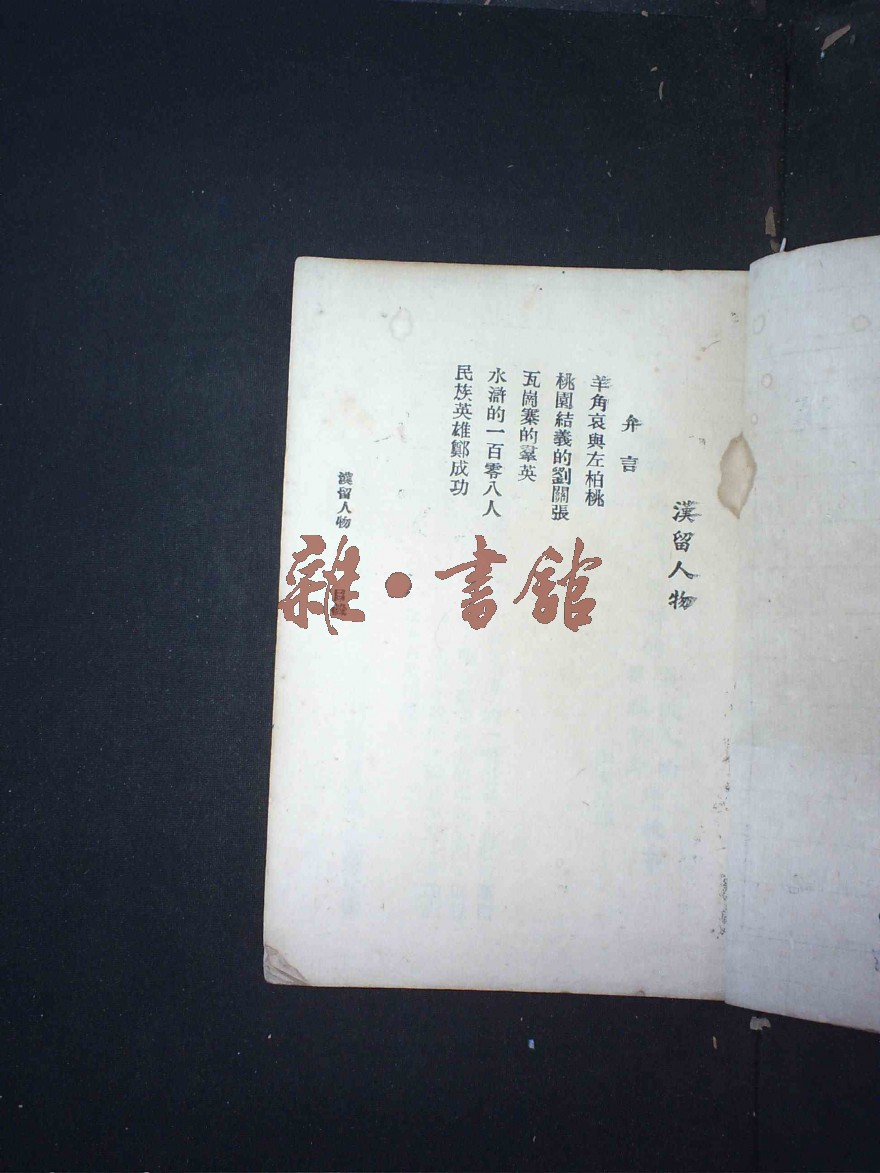 漢留人物
弁言
羊角哀與左柏桃
桃園結義的劉關張
瓦崗寨的羣英
水滸的一百零八人
民族英雄鄭成功
漢留人物 目錄
雜·書館